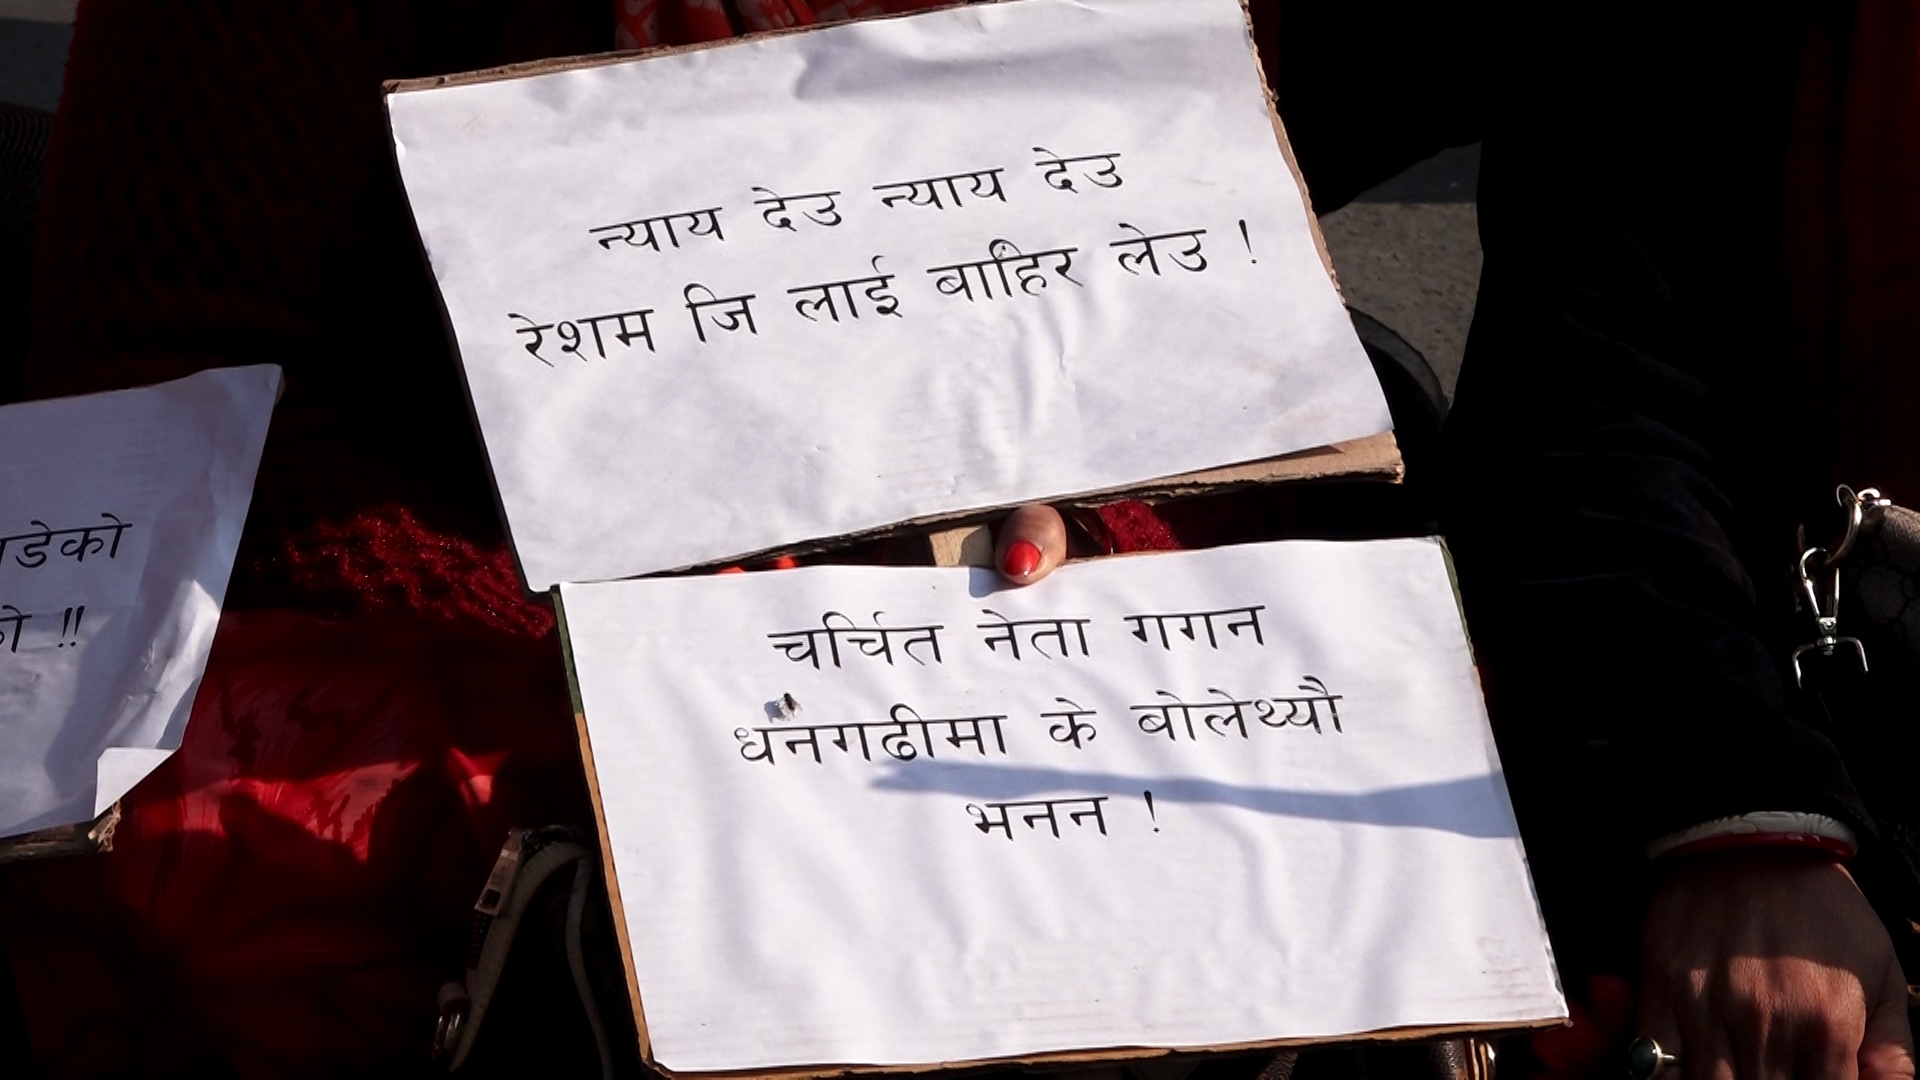 न्याय देउ न्याय देउ
रेशम जि लाई बाहिर लेउ !
चर्चित नेता गगन
धनगढीमा के बोलेथ्यौ
भनन !
डेको
!!